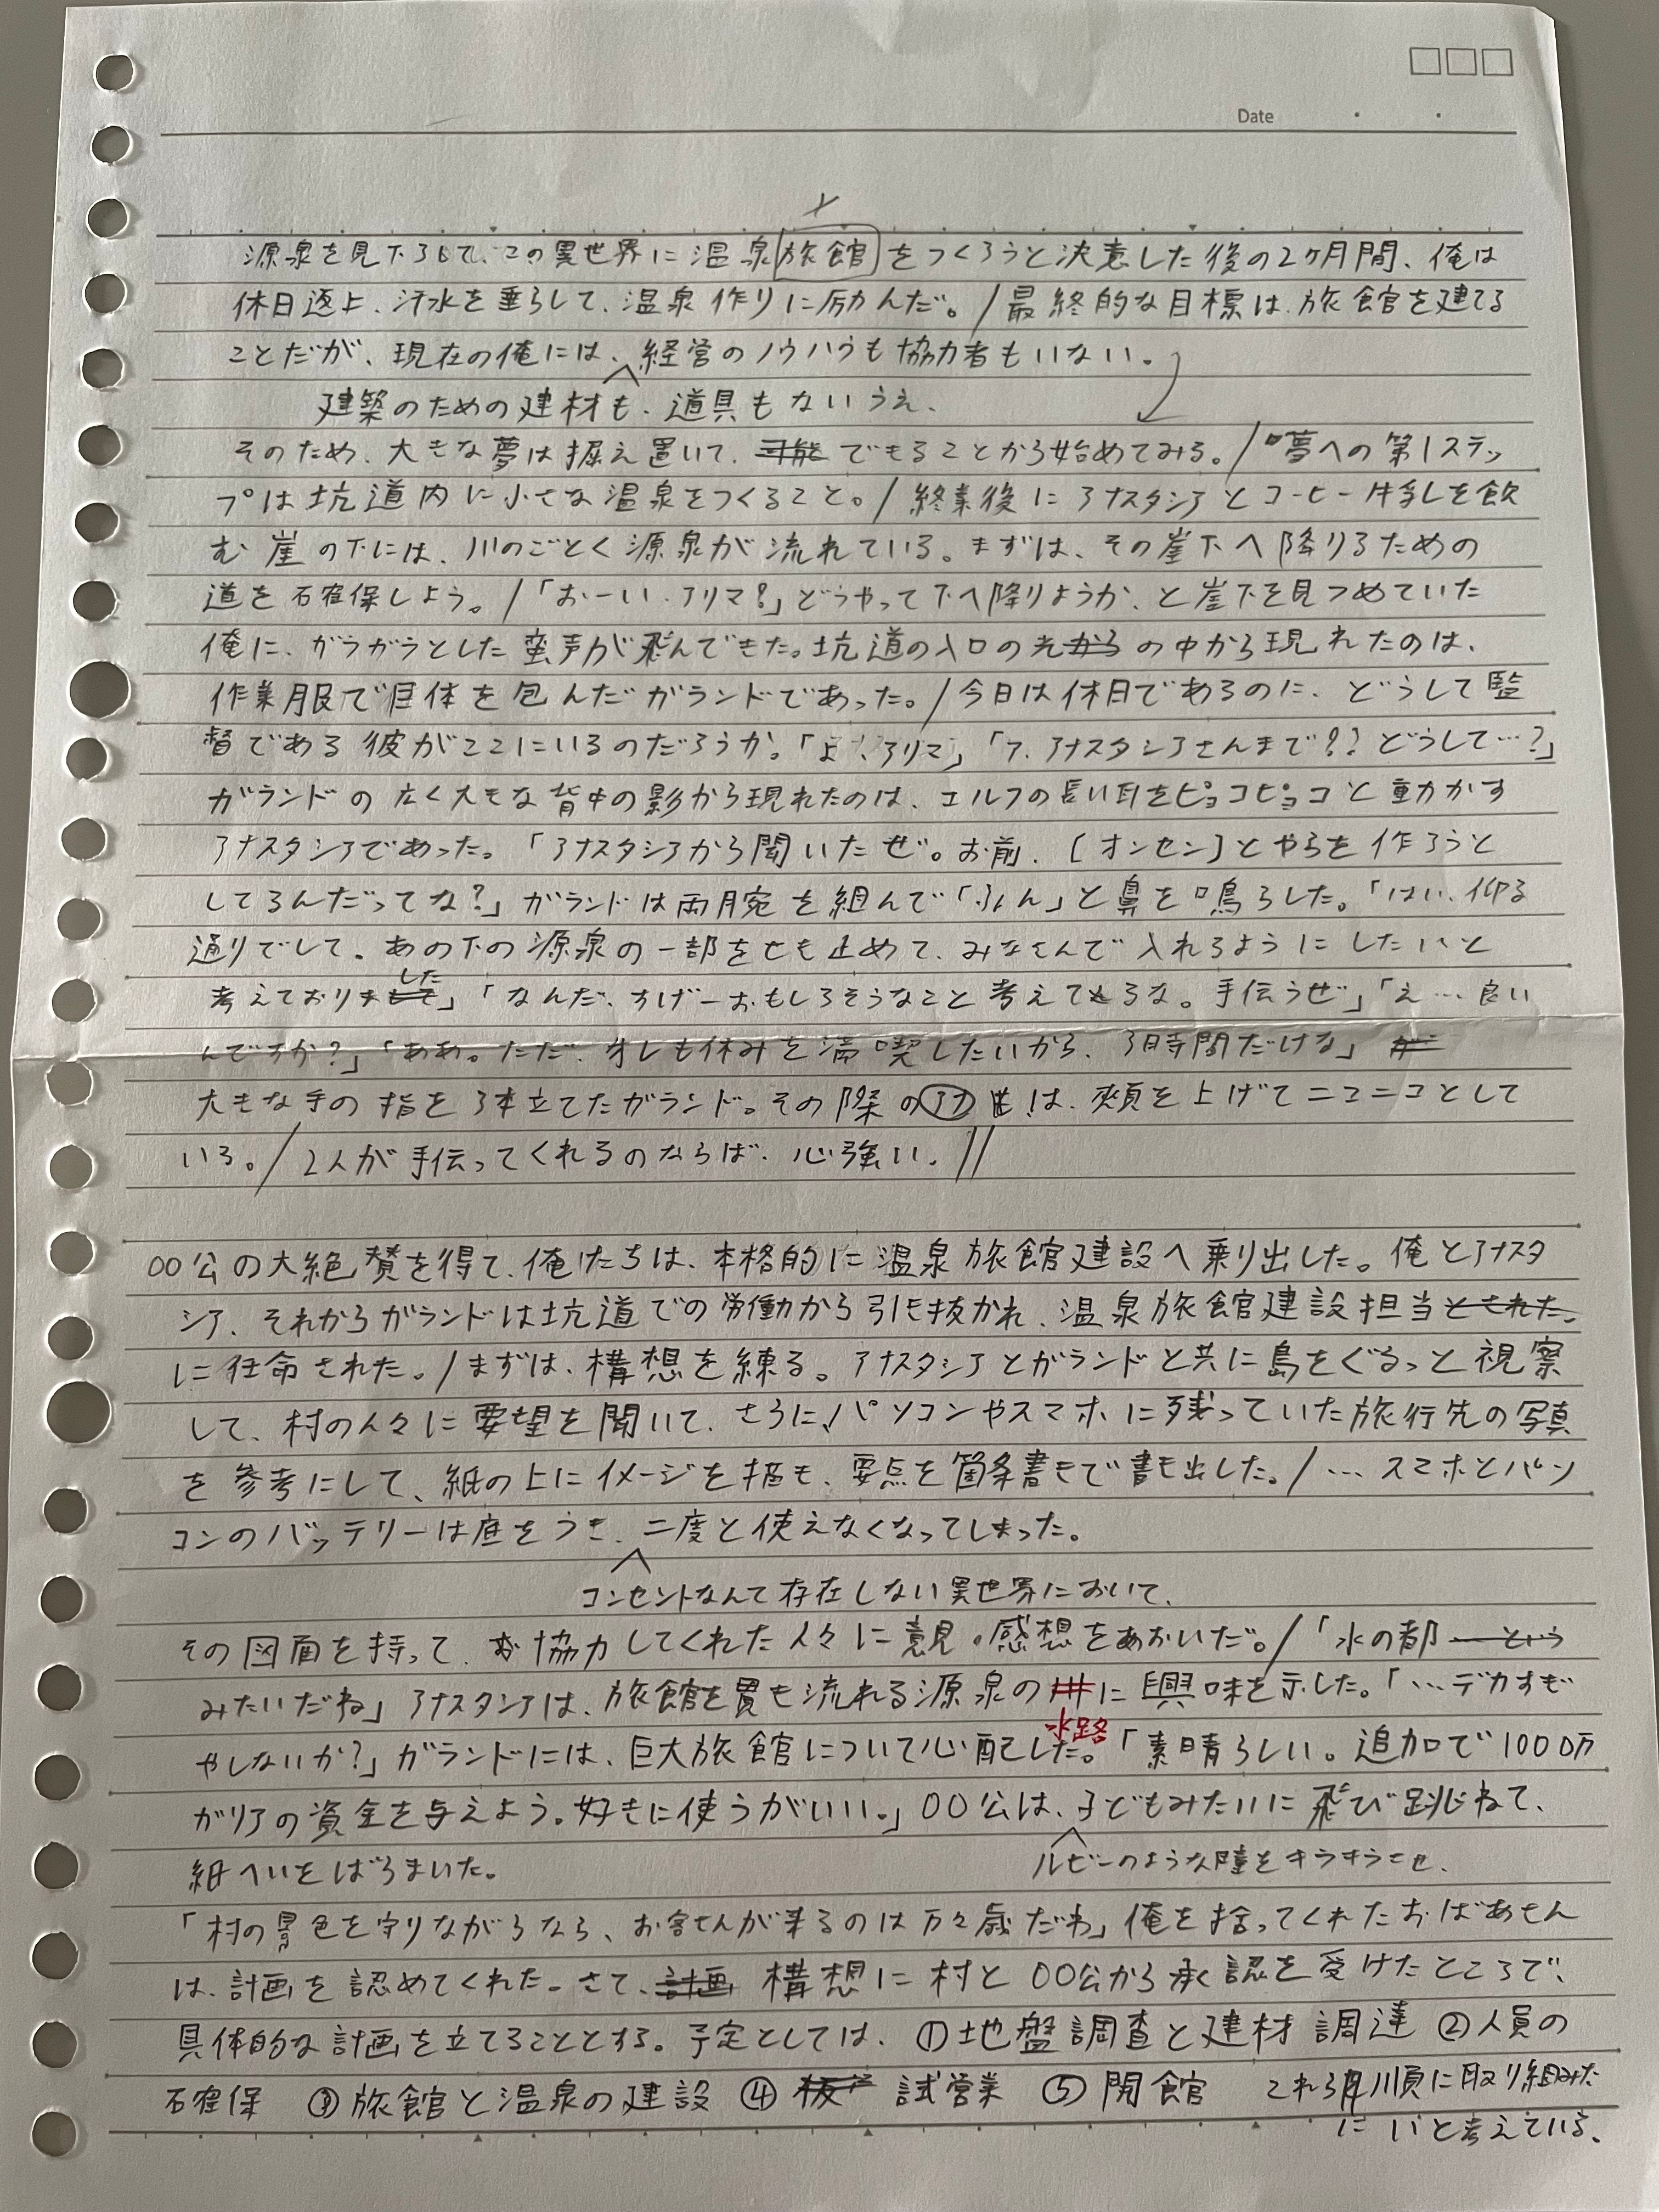 Date
源泉を見下ろして、この異世界に温泉旅館をつくろうと決意した後の2ヶ月間、俺は
休日返上、汗水を垂らして、温泉作りに励んだ。/最終的な目標は、旅館を建てる
ことだが、現在の俺には、経営のノウハウも協力者もいない。
建築のための建材も、道具もないうえ、
そのため、大きな夢は据え置いて、可能できることから始めてみる。/夢への第1ステッ
プは坑道内に小さな温泉をつくること。/終業後にアナスタシアとコーヒー牛乳を飲
む崖の下には、川のごとく源泉が流れている。まずは、その崖下へ降りるための
道を確保しよう。/「おーい、アリマ?」どうやって下へ降りようか、と崖下を見つめていた
俺に、ガラガラとした蛮声が飛んできた。坑道の入口の光からの中から現れたのは、
作業服で巨体を包んだガランドであった。/今日は休日であるのに、どうして監
督である彼がここにいるのだろうか。「よ、アリマ」「ア、アナスタシアさんまで!?どうして…?」
ガランドの広く大きな背中の影から現れたのは、エルフの長い耳をピョコピョコと動かす
アナスタシアであった。「アナスタシアから聞いたぜ。お前、[オンセン]とやらを作ろうと
してるんだってな?」ガランドは両腕を組んで「ふん」と鼻を鳴らした。「はい、仰る
通りでして。あの下の源泉の一部をせき止めて、みなさんで入れるようにしたいと
した
考えておりまして」「なんだ、すげーおもしろそうなこと考えてるな。手伝うぜ」「え…良い
んですか?」「ああ。ただ、オレも休みを満喫したいから、3時間だけな」
大きな手の指を3本立てたガランド。その際のアナは、頬を上げてニコニコとして
いる。/2人が手伝ってくれるのならば、心強い。//
〇〇公の大絶賛を得て、俺たちは、本格的に温泉旅館建設へ乗り出した。俺とアナスタ
シア、それからガランドは坑道での労働から引き抜かれ、温泉旅館建設担当とされた。
に任命された。/まずは、構想を練る。アナスタシアとガランドと共に島をぐるっと視察
して、村の人々に要望を聞いて、さらに、パソコンやスマホに残っていた旅行先の写真
を参考にして、紙の上にイメージを描き、要点を箇条書きで書き出した。/…スマホとパソ
コンのバッテリーは底をつき、二度と使えなくなってしまった。
コンセントなんて存在しない異世界において、
その図面を持って、協力してくれた人々に意見・感想をあおいだ。/「水の都という
みたいだね」アナスタシアは、旅館を貫き流れる源泉の に興味を示した。「…デカすぎ
水路
やしないか?」ガランドには、巨大旅館について心配した。「素晴らしい。追加で1000万
ガリアの資金を与えよう。好きに使うがいい。」〇〇公は、子どもみたいに飛び跳ねて、
ルビーのような瞳をキラキラさせ、
紙へいをばらまいた。
「村の景色を守りながらなら、お客さんが来るのは万々歳だわ」俺を拾ってくれたおばあさん
は、計画を認めてくれた。さて、計画 構想に村と〇〇公から承認を受けたところで、
具体的な計画を立てることとする。予定としては、①地盤調査と建材調達 ②人員の
確保 ③旅館と温泉の建設 ④ 試営業 ⑤開館 これら順に取り組みた
いと考えている。